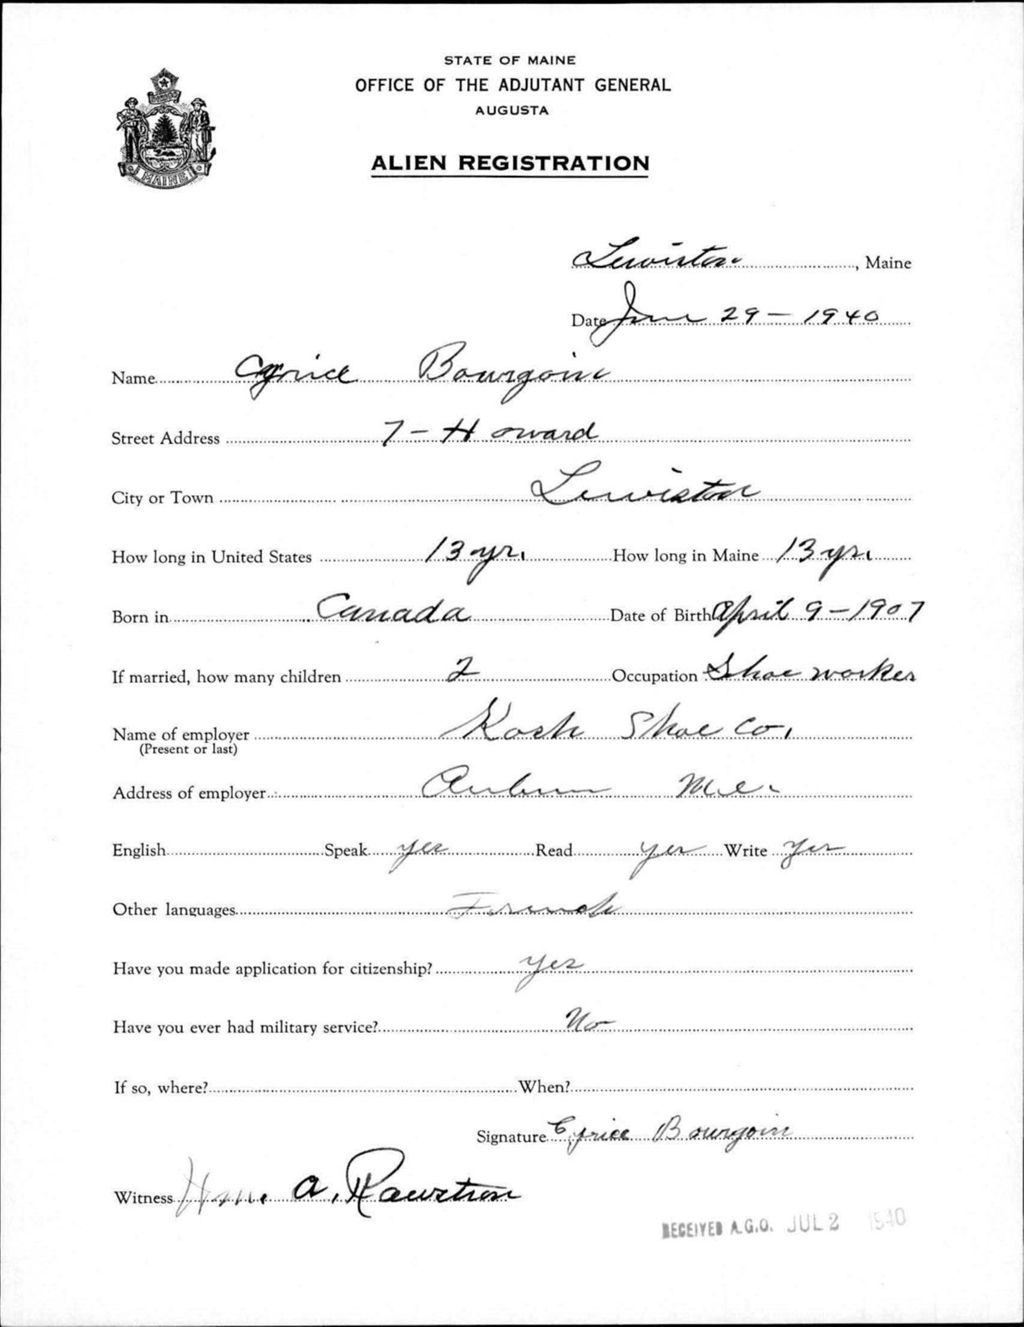 STATE OF MAINE
OFFICE OF THE ADJUTANT GENERAL
AUGUSTA
ALIEN REGISTRATION
MAINE
Lewiston, Maine
Date June 29 - 1940
Name Cyrice Bourgoin
Street Address 7 - Howard
City or Town Lewiston
How long in United States 13 yr. How long in Maine 13 yr.
Born in Canada Date of Birth April 9 - 1907
If married, how many children 2 Occupation Shoe worker
Name of employer Koch Shoe Co.
(Present or last)
Address of employer Auburn Me.
English Speak yes Read yes Write Yes
Other languages French
Have you made application for citizenship? Yes
Have you ever had military service? No
If so, where? When?
Signature Cyrice Bourgoin
Witness A.
RECEIVED A.G.O. JUL 2 1940